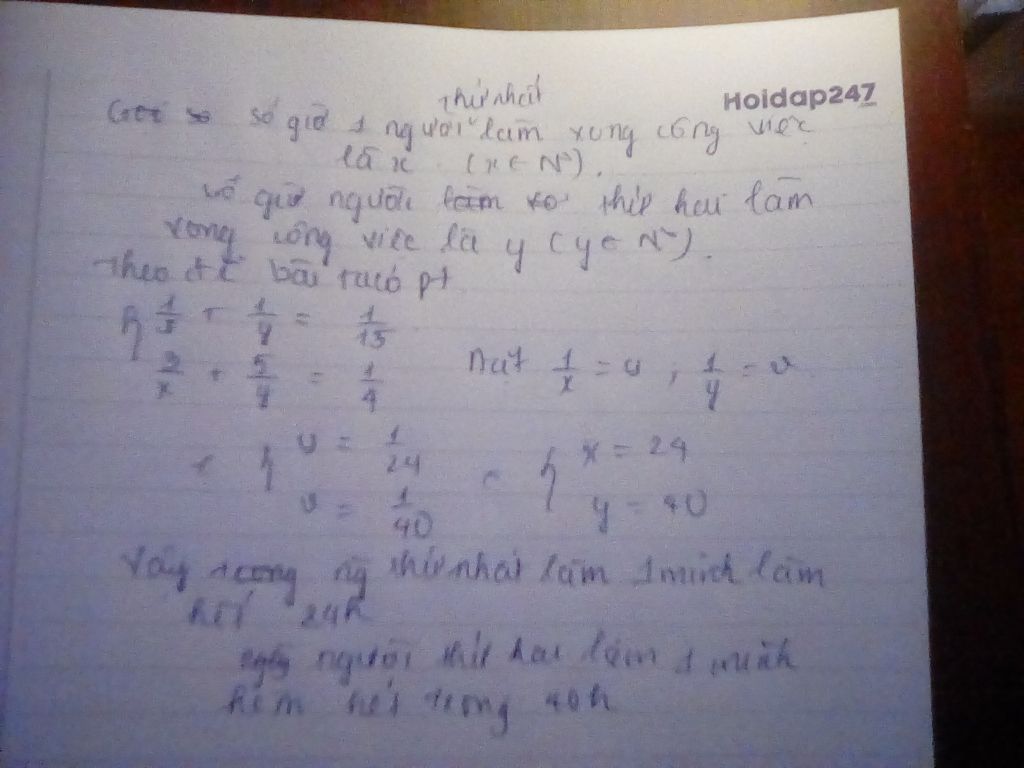 Hoidap247
thứ nhất
Gọi số giờ 1 người làm xong công việc
là x (x ∈ N*).
số giờ người làm xo thứ hai làm
xong công việc là y (y ∈ N*).
Theo đề bài ta có pt
{ 1/x + 1/y = 1/15
3/x + 5/y = 1/4 Đặt 1/x = u ; 1/y = v
{ u = 1/24 { x = 24
v = 1/40 y = 40
Vậy trong ng thứ nhất làm 1 mình làm
hết 24h
người thứ hai làm 1 mình
hết trong 40h